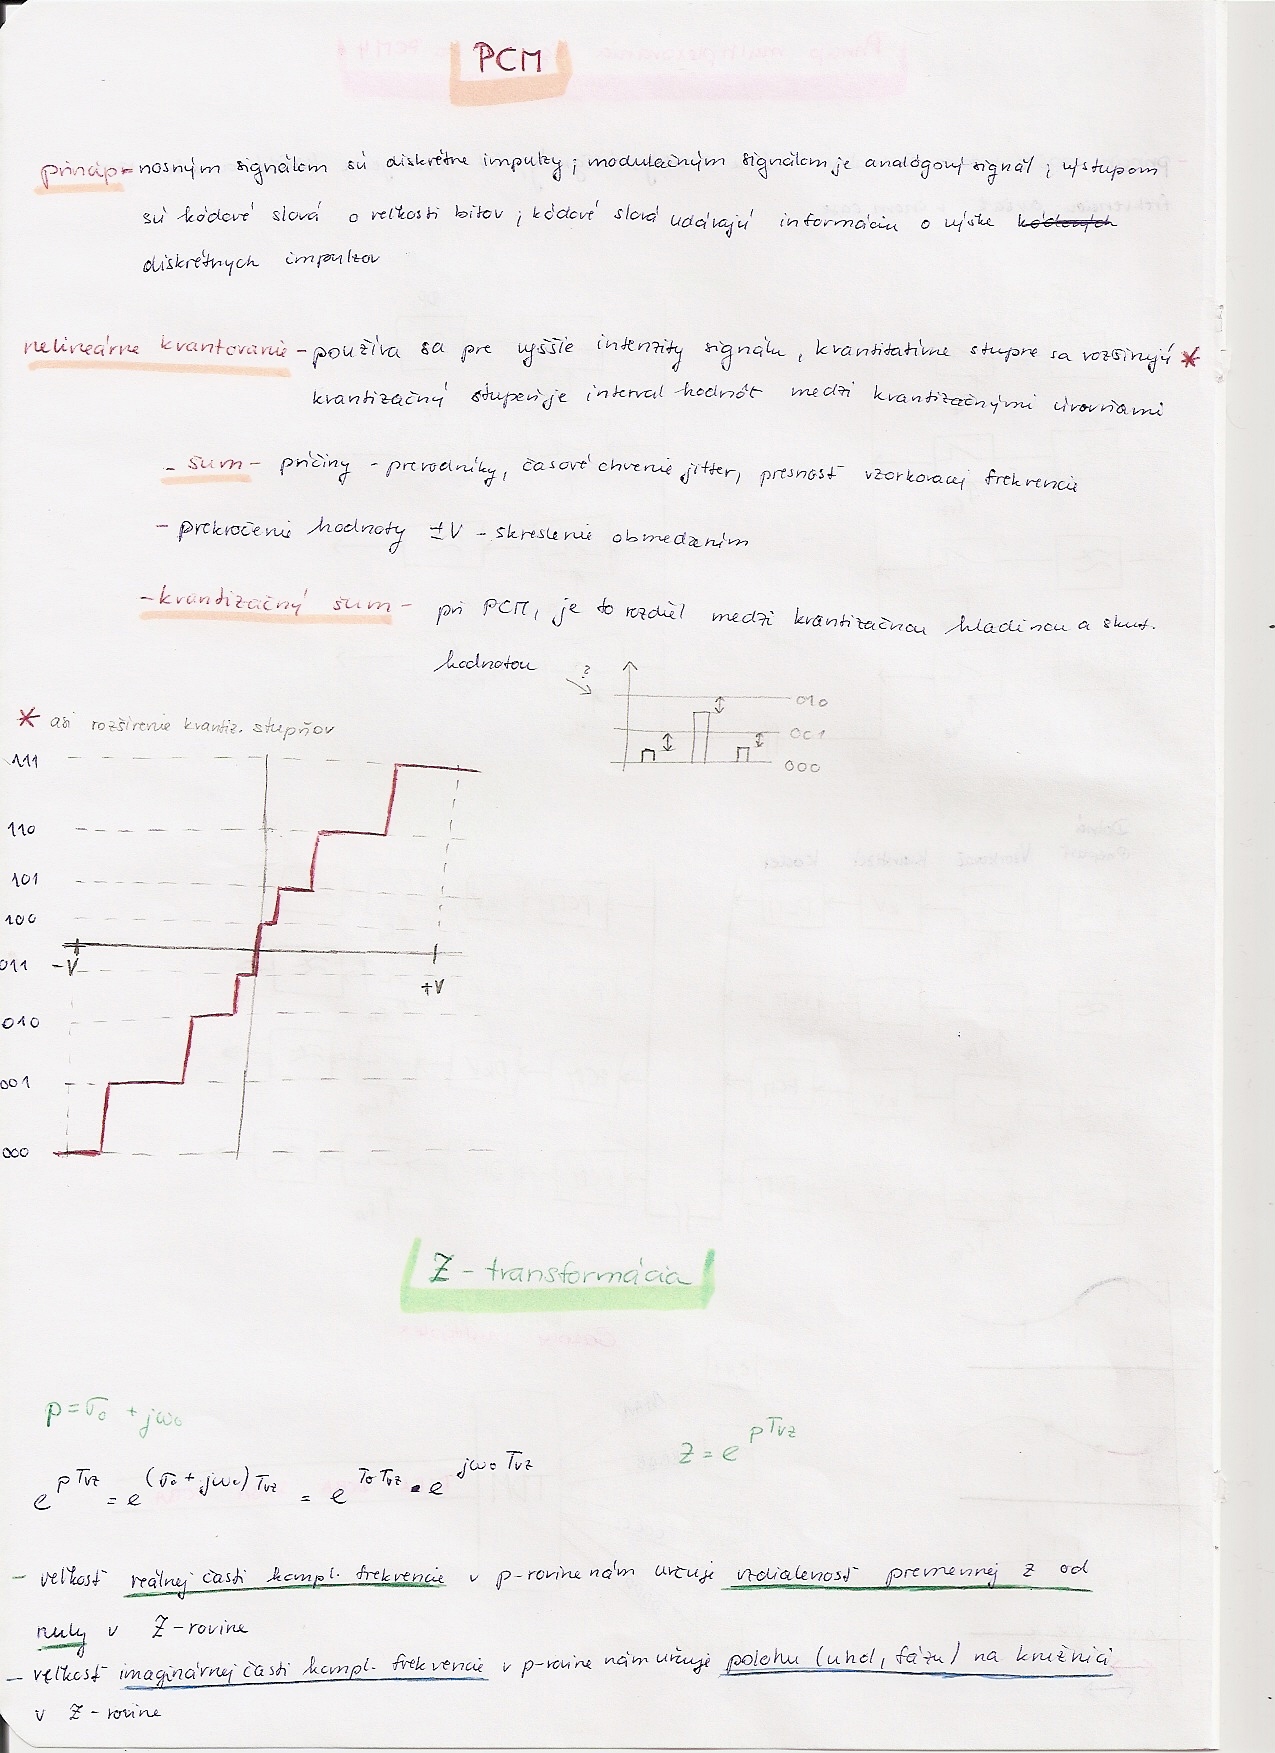 PCM
princíp - nosným signálom sú diskrétne impulzy; modulačným signálom je analógový signál; výstupom
sú kódové slová o veľkosti bitov; kódové slová udávajú informáciu o výške kódových
diskrétnych impulzov
nelineárne kvantovanie - používa sa pre vyššie intenzity signálu, kvantitatívne stupne sa rozširujú *
kvantizačný stupeň je interval hodnôt medzi kvantizačnými úrovňami
- šum - príčiny - prevodníky, časové chvenie jitter, presnosť vzorkovacej frekvencie
- prekročenie hodnoty ±V - skreslenie obmedzením
- kvantizačný šum - pri PCM, je to rozdiel medzi kvantizačnou hladinou a skut.
hodnotou
?
010
001
000
* asi rozšírenie kvantiz. stupňov
111
110
101
100
011 -V
+V
010
001
000
Z - transformácia
p = σ₀ + jω₀
z = e^pTvz
e^pTvz = e^(σ₀ + jω₀)Tvz = e^σ₀Tvz . e^jω₀Tvz
- veľkosť reálnej časti kompl. frekvencie v p-rovine nám určuje vzdialenosť premennej z od
nuly v Z-rovine
- veľkosť imaginárnej časti kompl. frekvencie v p-rovine nám určuje polohu (uhol, fázu) na kružnici
v Z-rovine